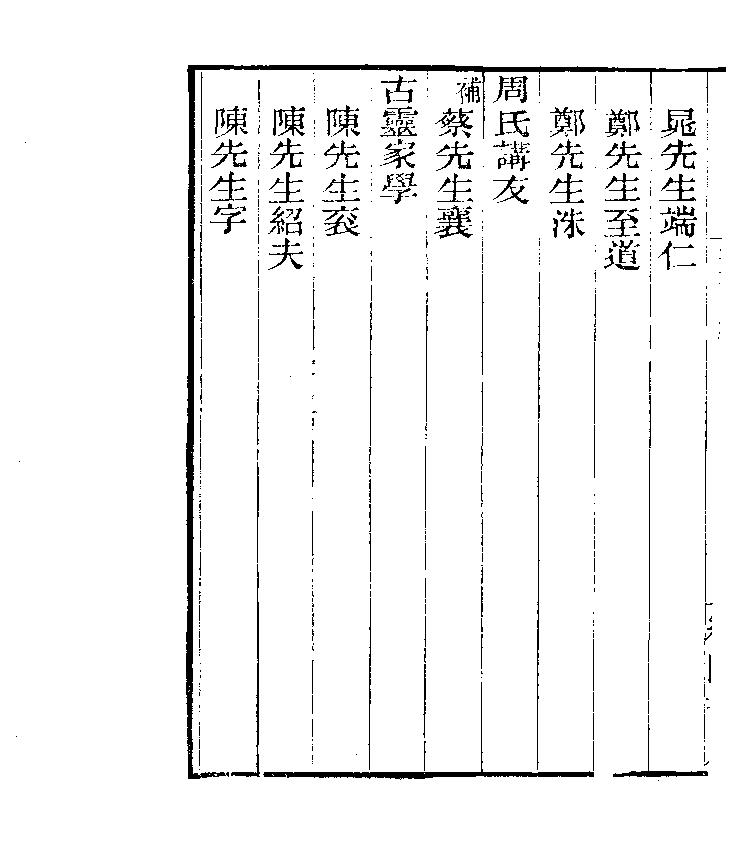 晁先生端仁
鄭先生至道
鄭先生洙
周氏講友
補蔡先生襄
古靈家學
陳先生衮
陳先生紹夫
陳先生字